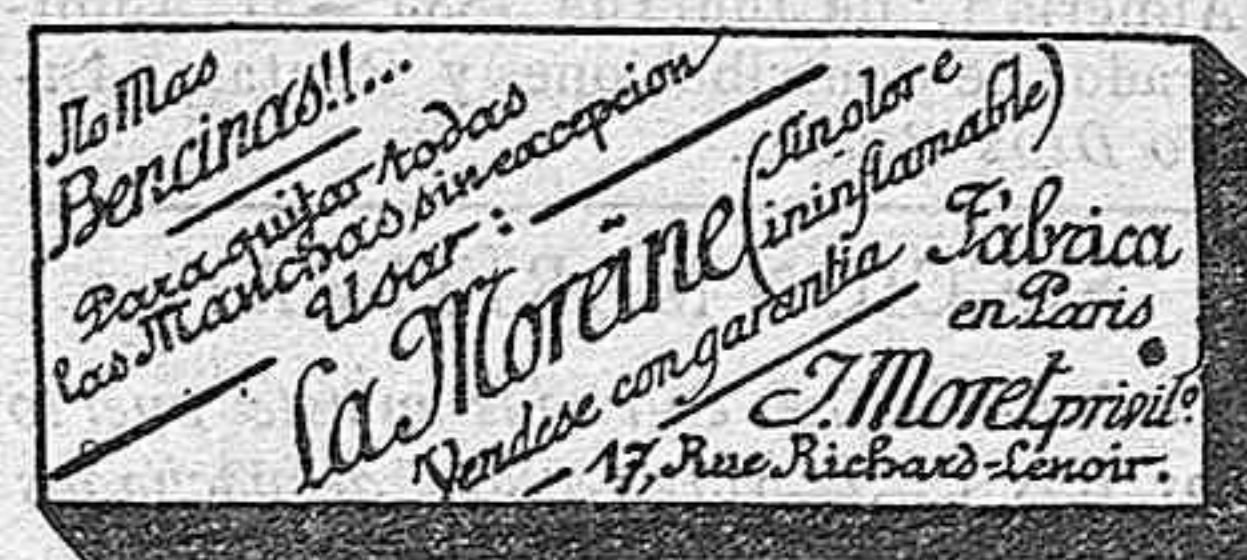 No Mas
Bencinas!!...
Para quitar todas
las Manchas sin excepcion
Usar:
La Moreïne (Sin olor e
ininflamable)
Vendese con garantia
Fábrica
en Paris
J. Moret privilº.
17, Rue Richard-Lenoir.